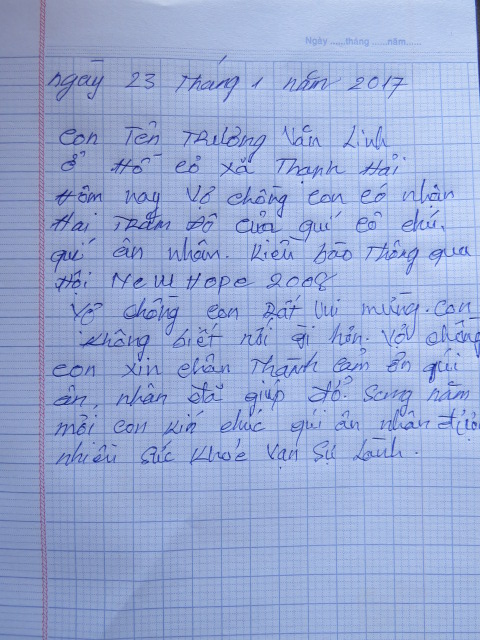 Ngày ......tháng ......năm......
ngày 23 Tháng 1 năm 2017
Con Tên Trưởng Văn Linh
ở Hố Cỏ xã Thạnh Hải
Hôm nay Vợ chồng con có nhận
Hai Trăm Đô của quí cô chú,
quí ân nhân. Kiều bào Thông qua
Hội New Hope 2008
Vợ chồng con Rất Vui mừng. con
không biết nói gì hơn. Vợ chồng
con xin chân Thành cảm ơn quí
ân nhân đã giúp đỡ. Sang năm
mới con kín chúc quí ân nhân được
nhiều sức khỏe Vạn Sự Lành.